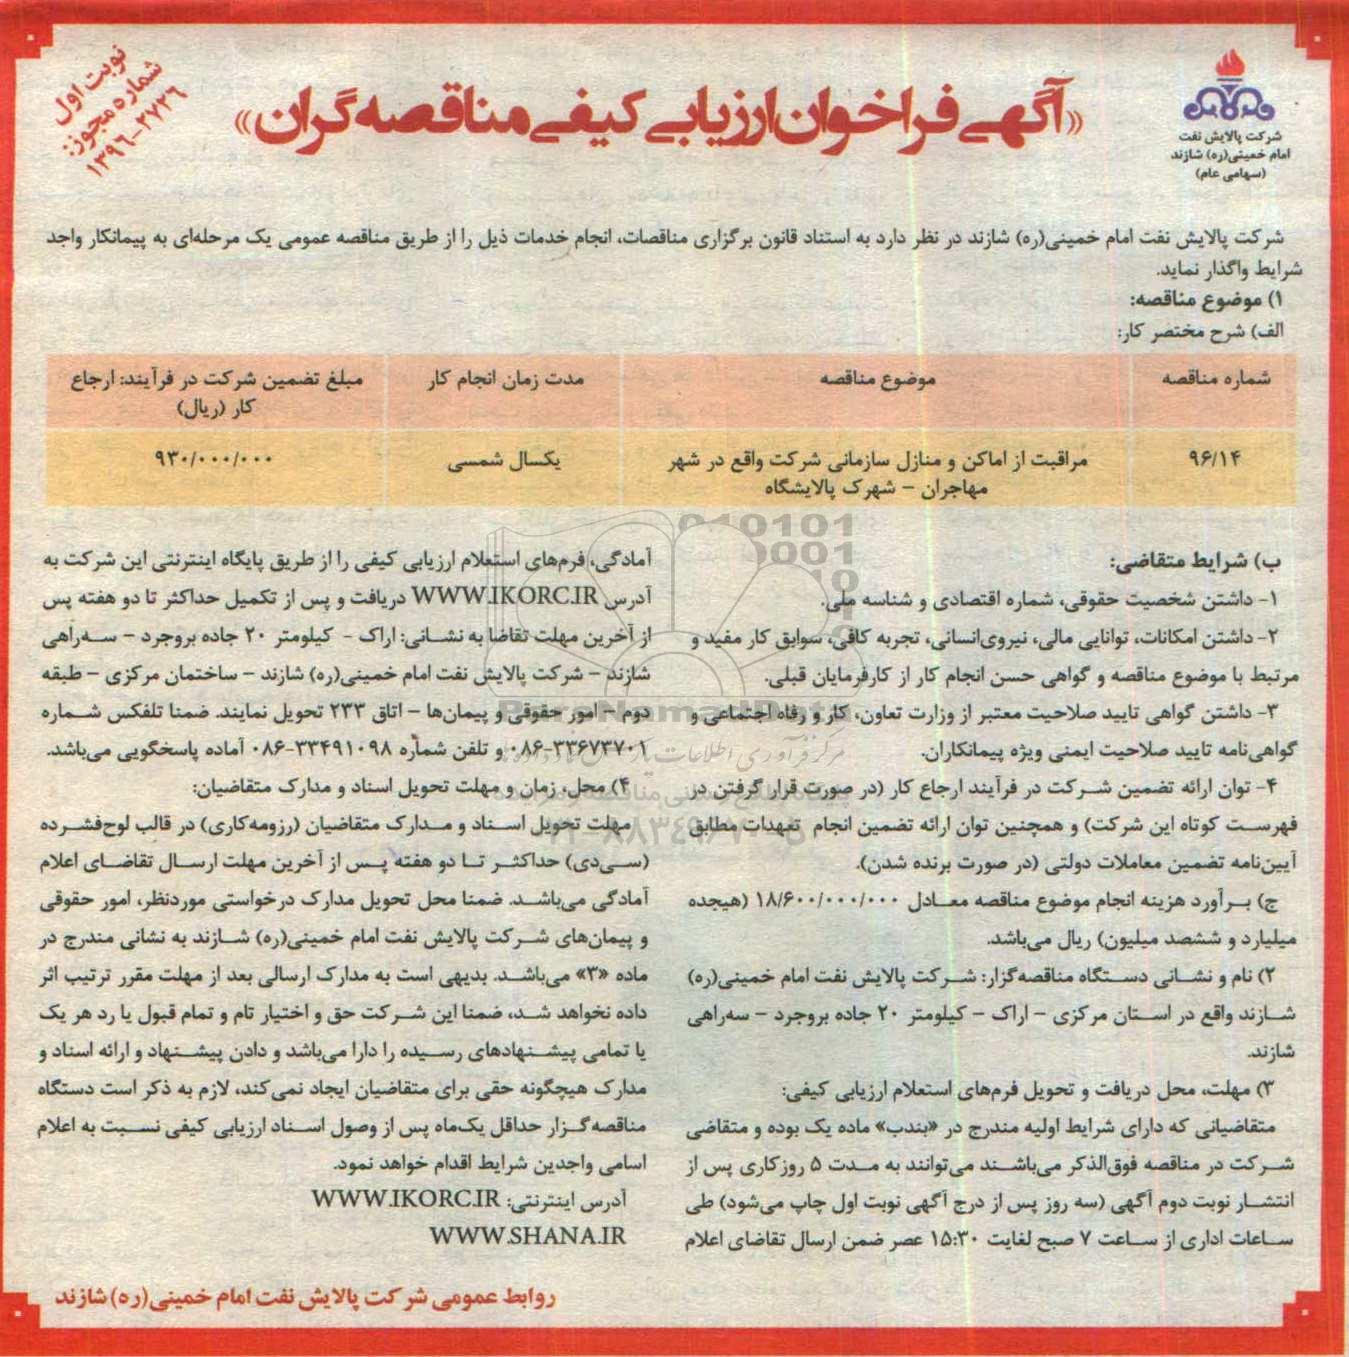 نوبت اول
شماره مجوز:
۱۳۹۶-۲۷۲۶
«آگهی فراخوان ارزیابی کیفی مناقصه گران»
شرکت پالایش نفت
امام خمینی(ره) شازند
(سهامی عام)
شرکت پالایش نفت امام خمینی(ره) شازند در نظر دارد به استناد قانون برگزاری مناقصات، انجام خدمات ذیل را از طریق مناقصه عمومی یک مرحله‌ای به پیمانکار واجد
شرایط واگذار نماید.
۱) موضوع مناقصه:
الف) شرح مختصر کار:
شماره مناقصه
موضوع مناقصه
مدت زمان انجام کار
مبلغ تضمین شرکت در فرآیند: ارجاع
کار (ریال)
۹۶/۱۴
مراقبت از اماکن و منازل سازمانی شرکت واقع در شهر
مهاجران – شهرک پالایشگاه
یکسال شمسی
۹۳۰/۰۰۰/۰۰۰
ب) شرایط متقاضی:
۱- داشتن شخصیت حقوقی، شماره اقتصادی و شناسه ملی.
۲- داشتن امکانات، توانایی مالی، نیروی‌انسانی، تجربه کافی، سوابق کار مفید و
مرتبط با موضوع مناقصه و گواهی حسن انجام کار از کارفرمایان قبلی.
۳- داشتن گواهی تایید صلاحیت معتبر از وزارت تعاون، کار و رفاه اجتماعی و
گواهی‌نامه تایید صلاحیت ایمنی ویژه پیمانکاران.
۴- توان ارائه تضمین شرکت در فرآیند ارجاع کار (در صورت قرار گرفتن در
فهرست کوتاه این شرکت) و همچنین توان ارائه تضمین انجام تعهدات مطابق
آیین‌نامه تضمین معاملات دولتی (در صورت برنده شدن).
ج) برآورد هزینه انجام موضوع مناقصه معادل ۱۸/۶۰۰/۰۰۰/۰۰۰ (هیجده
میلیارد و ششصد میلیون) ریال می‌باشد.
۲) نام و نشانی دستگاه مناقصه‌گزار: شرکت پالایش نفت امام خمینی(ره)
شازند واقع در استان مرکزی – اراک – کیلومتر ۲۰ جاده بروجرد – سه‌راهی
شازند.
۳) مهلت، محل دریافت و تحویل فرم‌های استعلام ارزیابی کیفی:
متقاضیانی که دارای شرایط اولیه مندرج در «بندب» ماده یک بوده و متقاضی
شرکت در مناقصه فوق‌الذکر می‌باشند می‌توانند به مدت ۵ روزکاری پس از
انتشار نوبت دوم آگهی (سه روز پس از درج آگهی نوبت اول چاپ می‌شود) طی
ساعات اداری از ساعت ۷ صبح لغایت ۱۵:۳۰ عصر ضمن ارسال تقاضای اعلام
آمادگی، فرم‌های استعلام ارزیابی کیفی را از طریق پایگاه اینترنتی این شرکت به
آدرس WWW.IKORC.IR دریافت و پس از تکمیل حداکثر تا دو هفته پس
از آخرین مهلت تقاضا به نشانی: اراک - کیلومتر ۲۰ جاده بروجرد – سه‌راهی
شازند – شرکت پالایش نفت امام خمینی(ره) شازند – ساختمان مرکزی – طبقه
دوم – امور حقوقی و پیمان‌ها – اتاق ۲۳۳ تحویل نمایند. ضمنا تلفکس شماره
۰۸۶-۳۳۶۷۳۷۰۱ و تلفن شماره ۰۸۶-۳۳۴۹۱۰۹۸ آماده پاسخگویی می‌باشد.
۴) محل، زمان و مهلت تحویل اسناد و مدارک متقاضیان:
مهلت تحویل اسناد و مدارک متقاضیان (رزومه‌کاری) در قالب لوح‌فشرده
(سی‌دی) حداکثر تا دو هفته پس از آخرین مهلت ارسال تقاضای اعلام
آمادگی می‌باشد. ضمنا محل تحویل مدارک درخواستی موردنظر، امور حقوقی
و پیمان‌های شرکت پالایش نفت امام خمینی(ره) شازند به نشانی مندرج در
ماده «۳» می‌باشد. بدیهی است به مدارک ارسالی بعد از مهلت مقرر ترتیب اثر
داده نخواهد شد، ضمنا این شرکت حق و اختیار تام و تمام قبول یا رد هر یک
یا تمامی پیشنهادهای رسیده را دارا می‌باشد و دادن پیشنهاد و ارائه اسناد و
مدارک هیچگونه حقی برای متقاضیان ایجاد نمی‌کند، لازم به ذکر است دستگاه
مناقصه‌گزار حداقل یک‌ماه پس از وصول اسناد ارزیابی کیفی نسبت به اعلام
اسامی واجدین شرایط اقدام خواهد نمود.
آدرس اینترنتی: WWW.IKORC.IR
WWW.SHANA.IR
روابط عمومی شرکت پالایش نفت امام خمینی(ره) شازند